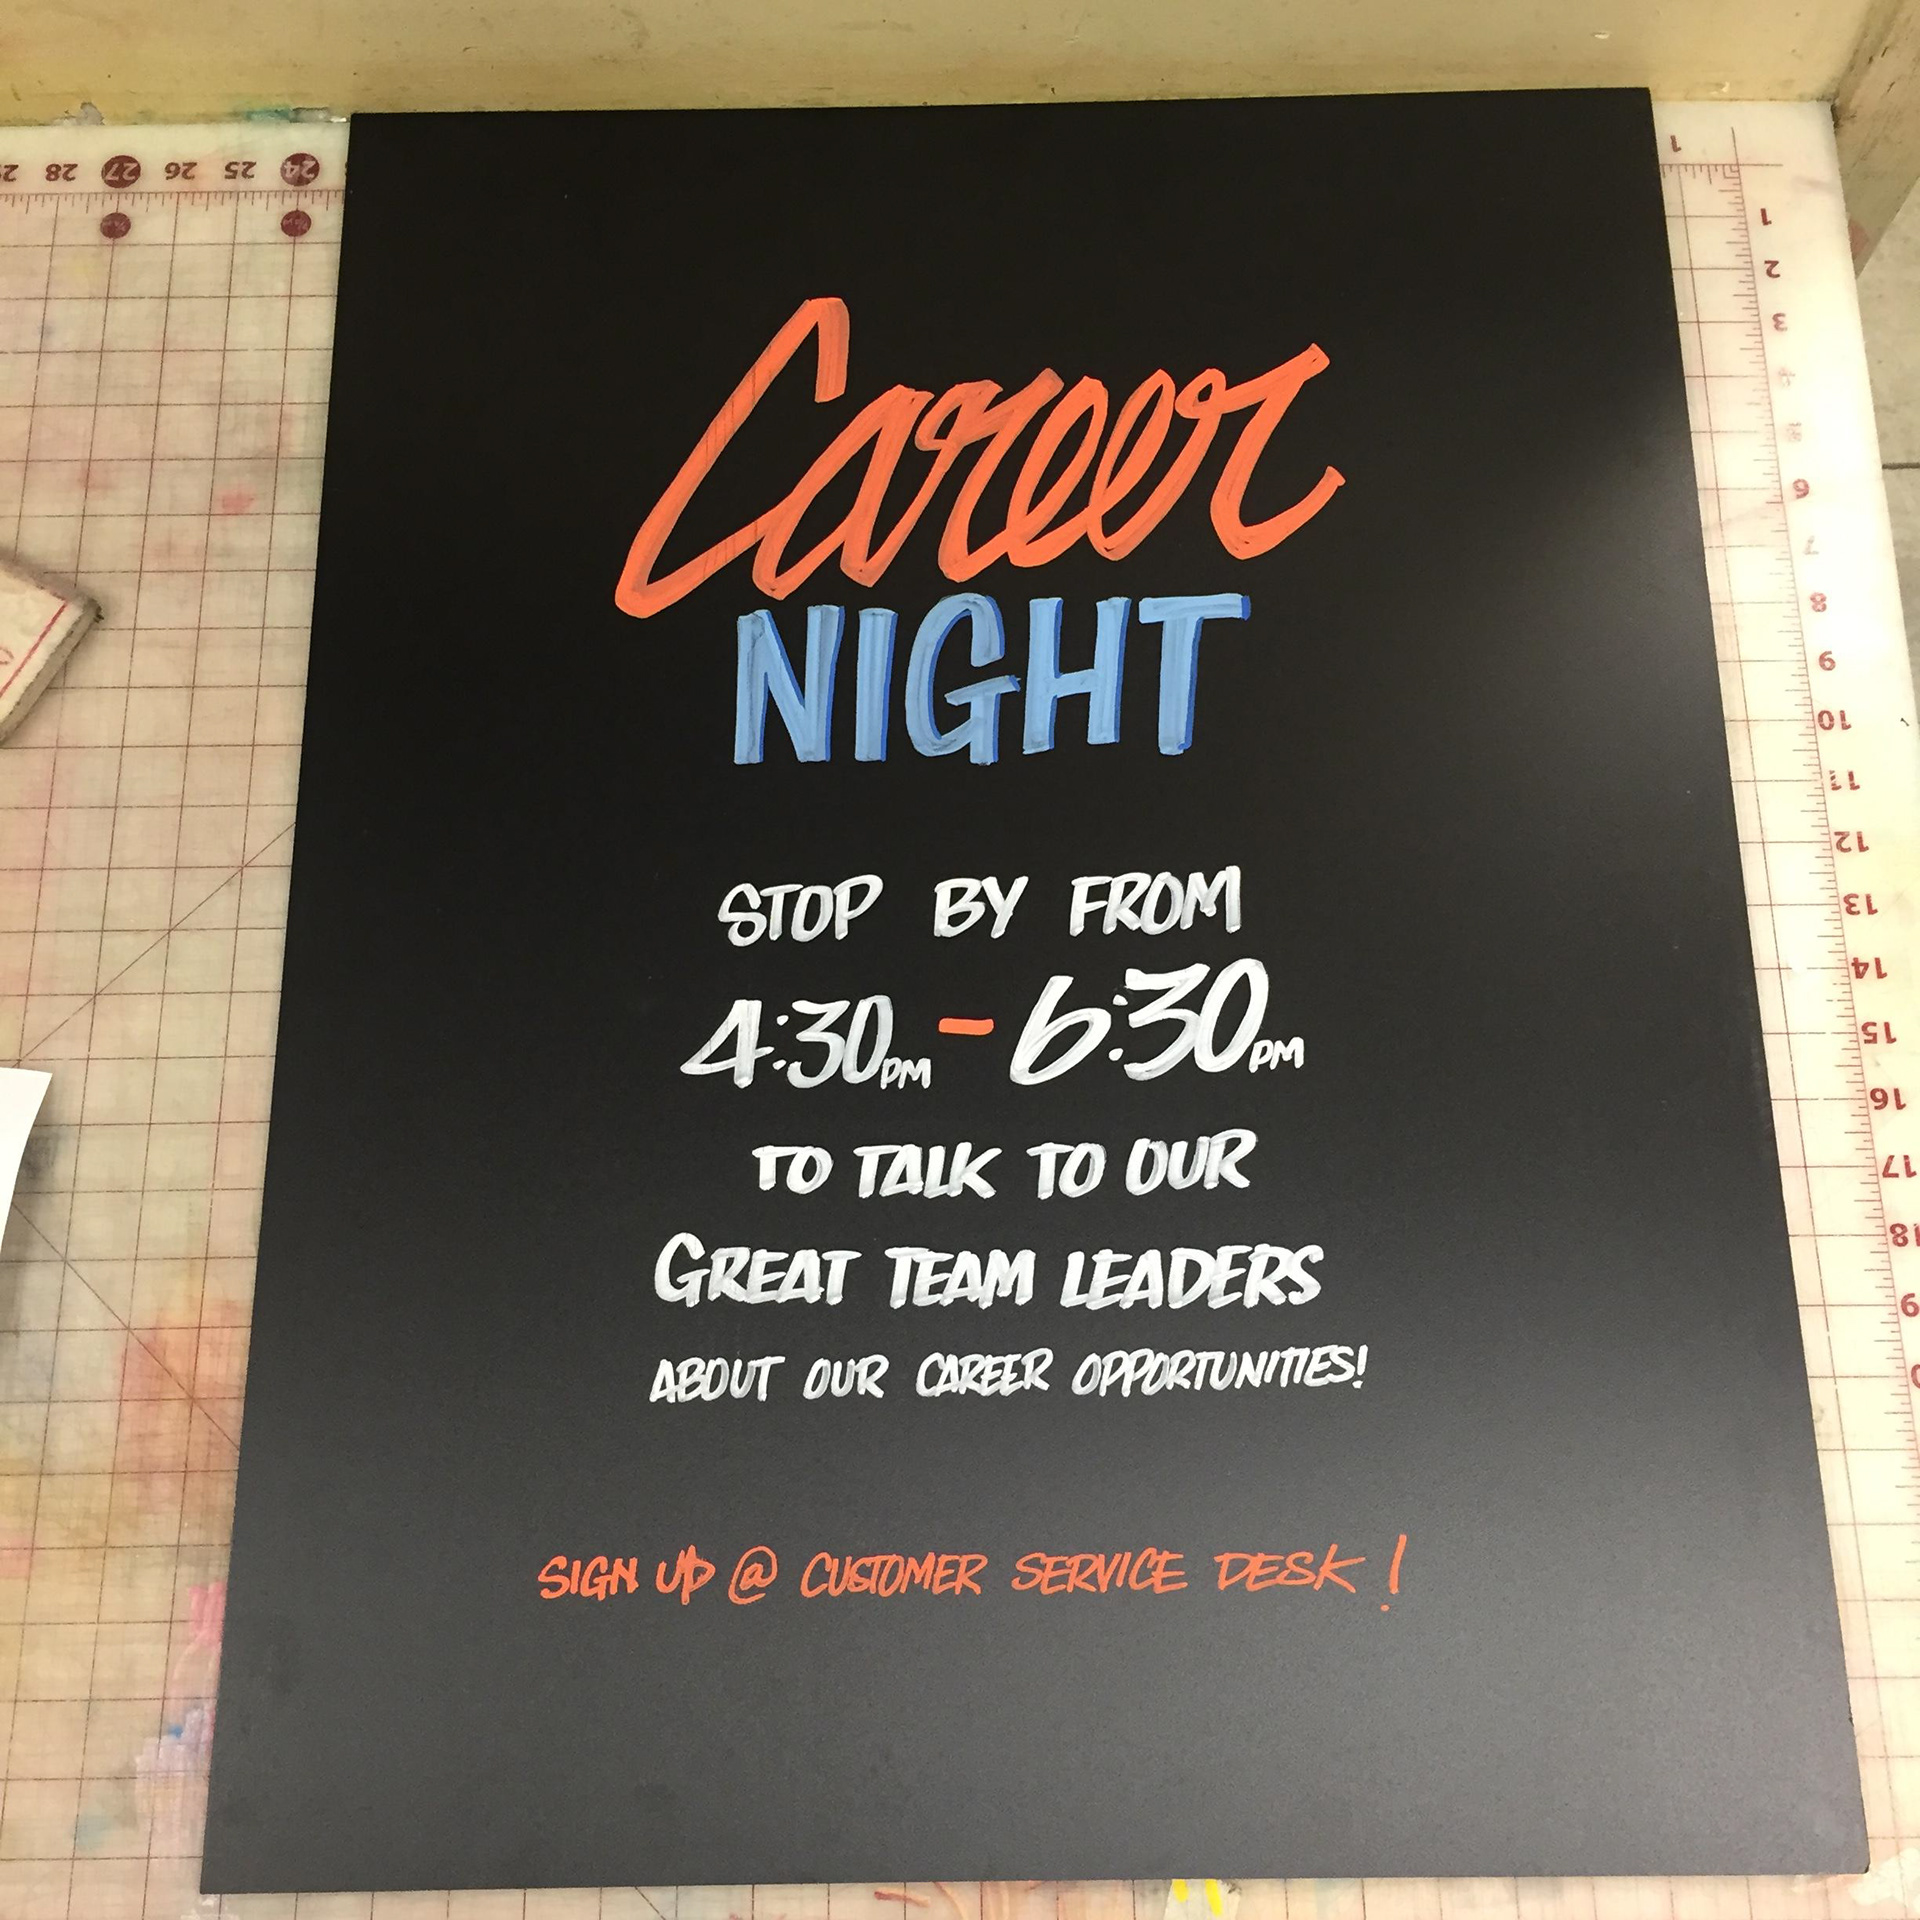 Career
NIGHT
STOP BY FROM
4:30PM - 6:30PM
TO TALK TO OUR
GREAT TEAM LEADERS
ABOUT OUR CAREER OPPORTUNITIES!
SIGN UP @ CUSTOMER SERVICE DESK!
28 27 26 25 24
1
1
2
3
6
7
8
9
10
11
12
13
14
15
16
17
18